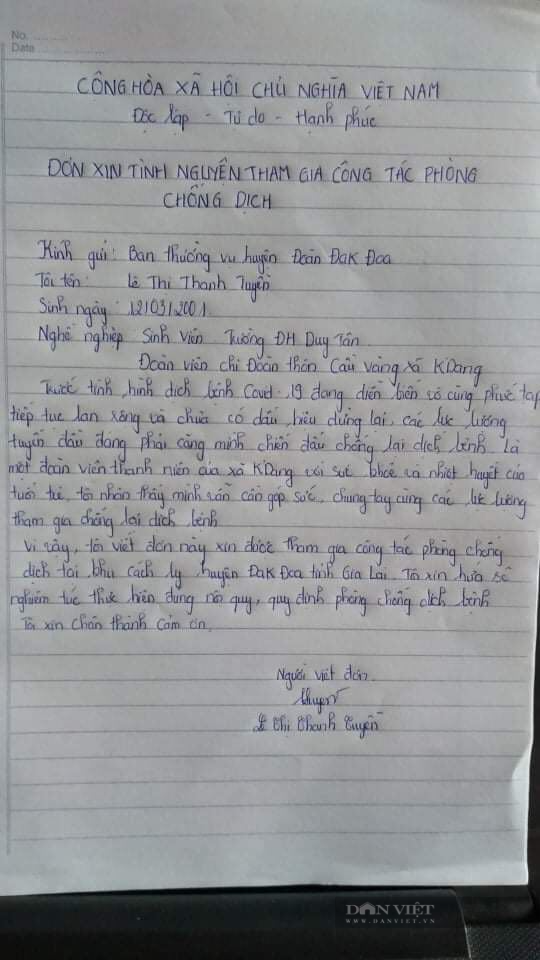 No. ............
Date ........................
CÔNG HÒA XÃ HỘI CHỦ NGHĨA VIỆT NAM
Độc lập - Tự do - Hạnh phúc
ĐƠN XIN TÌNH NGUYỆN THAM GIA CÔNG TÁC PHÒNG
CHỐNG DỊCH
Kính gửi: Ban thường vụ huyện Đoàn Đak Đoa
Tôi tên: Lê Thị Thanh Tuyền
Sinh ngày: 12/03/2001
Nghề nghiệp Sinh Viên Trường ĐH Duy Tân
Đoàn viên chi Đoàn thôn Cầu vàng xã KDang
Trước tình hình dịch bệnh Covid-19 đang diễn biến vô cùng phức tạp
tiếp tục lan rộng và chưa có dấu hiệu dừng lại, các lực lượng
tuyến đầu đang phải căng mình chiến đấu chống lại dịch bệnh. Là
một đoàn viên thanh niên của xã KDang với sức khỏe và nhiệt huyết của
tuổi trẻ, tôi nhận thấy mình cần góp sức, chung tay cùng các lực lượng
tham gia chống lại dịch bệnh
Vì vậy, tôi viết đơn này xin được tham gia công tác phòng chống
dịch tại khu cách ly huyện Đak Đoa tỉnh Gia Lai. Tôi xin hứa sẽ
nghiêm túc thực hiện đúng nội quy, quy định phòng chống dịch bệnh
Tôi xin chân thành cảm ơn.
Người viết đơn
Lê Thị Thanh Tuyền
DÂN VIỆT
WWW.DANVIET.VN